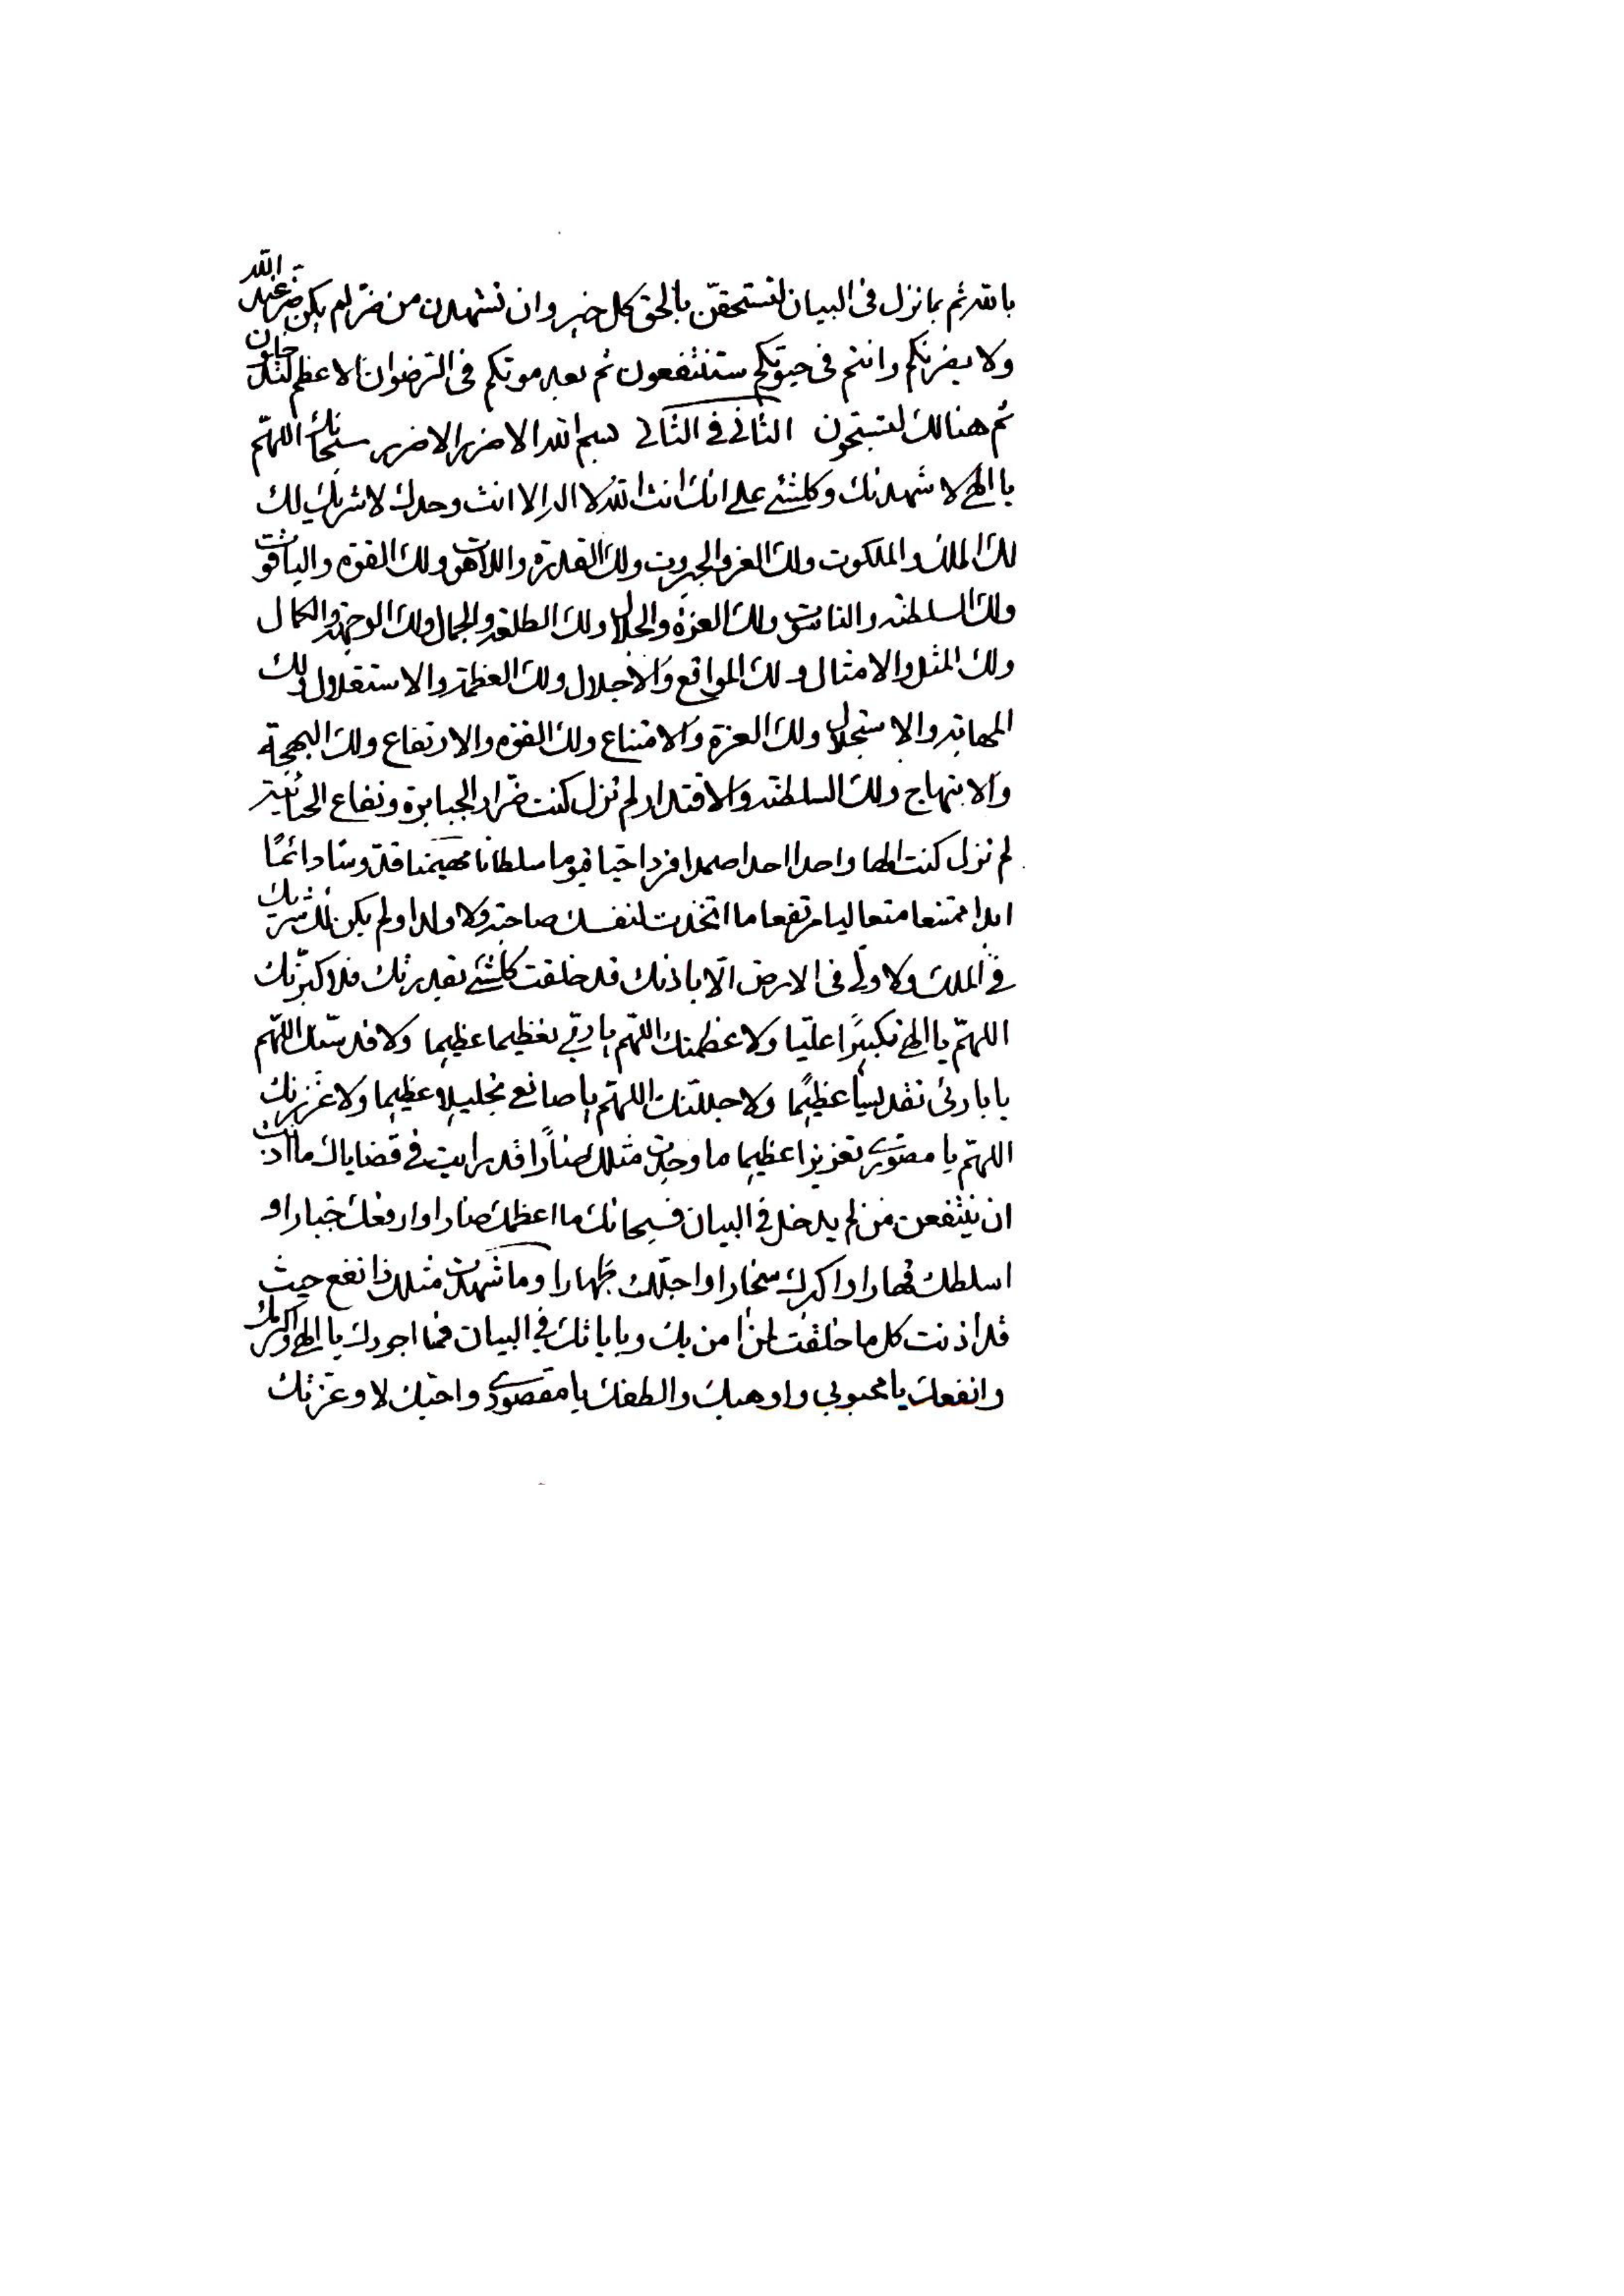 بالله ثم بما نزل فى البيان لتستحقن بالحق كل خير وان تشهدن من ضر لم يكن ضر عند الله
ولا يضرنكم وانتم فى حيوتكم ستنتفعون ثم بعد موتكم فى الرضوان الاعظم لتدخلون
ثم هنالك لتسبحون الثانى فى الثانى بسم الله الاضرر الاضرر سبحانك اللهم
يا الهى لاشهدنك وكلشئ على انك انت الله لا اله الا انت وحدك لا شريك لك
لك الملك والملكوت ولك العز والجبروت ولك القدرة واللاهوت ولك القوة والياقوت
ولك السلطنة والناسوت ولك العزة والجلال ولك الطلعة والجمال ولك الوجهة والكمال
ولك المثل والامثال ولك المواقع والاجلال ولك العظمة والاستقلال ولك
المهابة والاستجلال ولك العزة والامتناع ولك القوة والارتفاع ولك البهجة
والابتهاج ولك السلطنة والاقتدار لم تزل كنت ضرار الجبابرة ونفاع
لم تزل كنت الها واحدا احدا صمدا فردا حيا قيوما سلطانا مهيمنا قدوسا دائما
ابدا ممتنعا متعاليا مرتفعا ما اتخذت لنفسك صاحبة ولا ولدا ولم يكن لك شريك
فى الملك ولا ولى فى الارض الا باذنك قد خلقت كلشئ بقدرتك فلاكبرنك
اللهم يا الهى تكبيرا عليا ولاعظمنك اللهم يا ربى تعظيما عظيما ولاقدسنك اللهم
يا بارئى تقديسا عظيما ولاجللنك اللهم يا صانعى تجليلا عظيما ولاعززنك
اللهم يا مصورى تعزيزا عظيما ما وجدت مثلك ضارا قد رايت فى قضاياك ما اذنت
ان ينتفعن من لم يدخل فى البيان فسبحانك ما اعظمك ضارا وارفعك جبارا و
اسلطك قهارا واكبرك سخارا واجللك ظهارا وما شهدت مثلك ذا نفع حيث
قد اذنت كل ما خلقت لمن امن بك وباياتك فى البيان فما اجودك يا الهى واكرمك
وانفعك يا محبوبى واوهبك والطفك يا مقصودى واحبك لا وعزتك